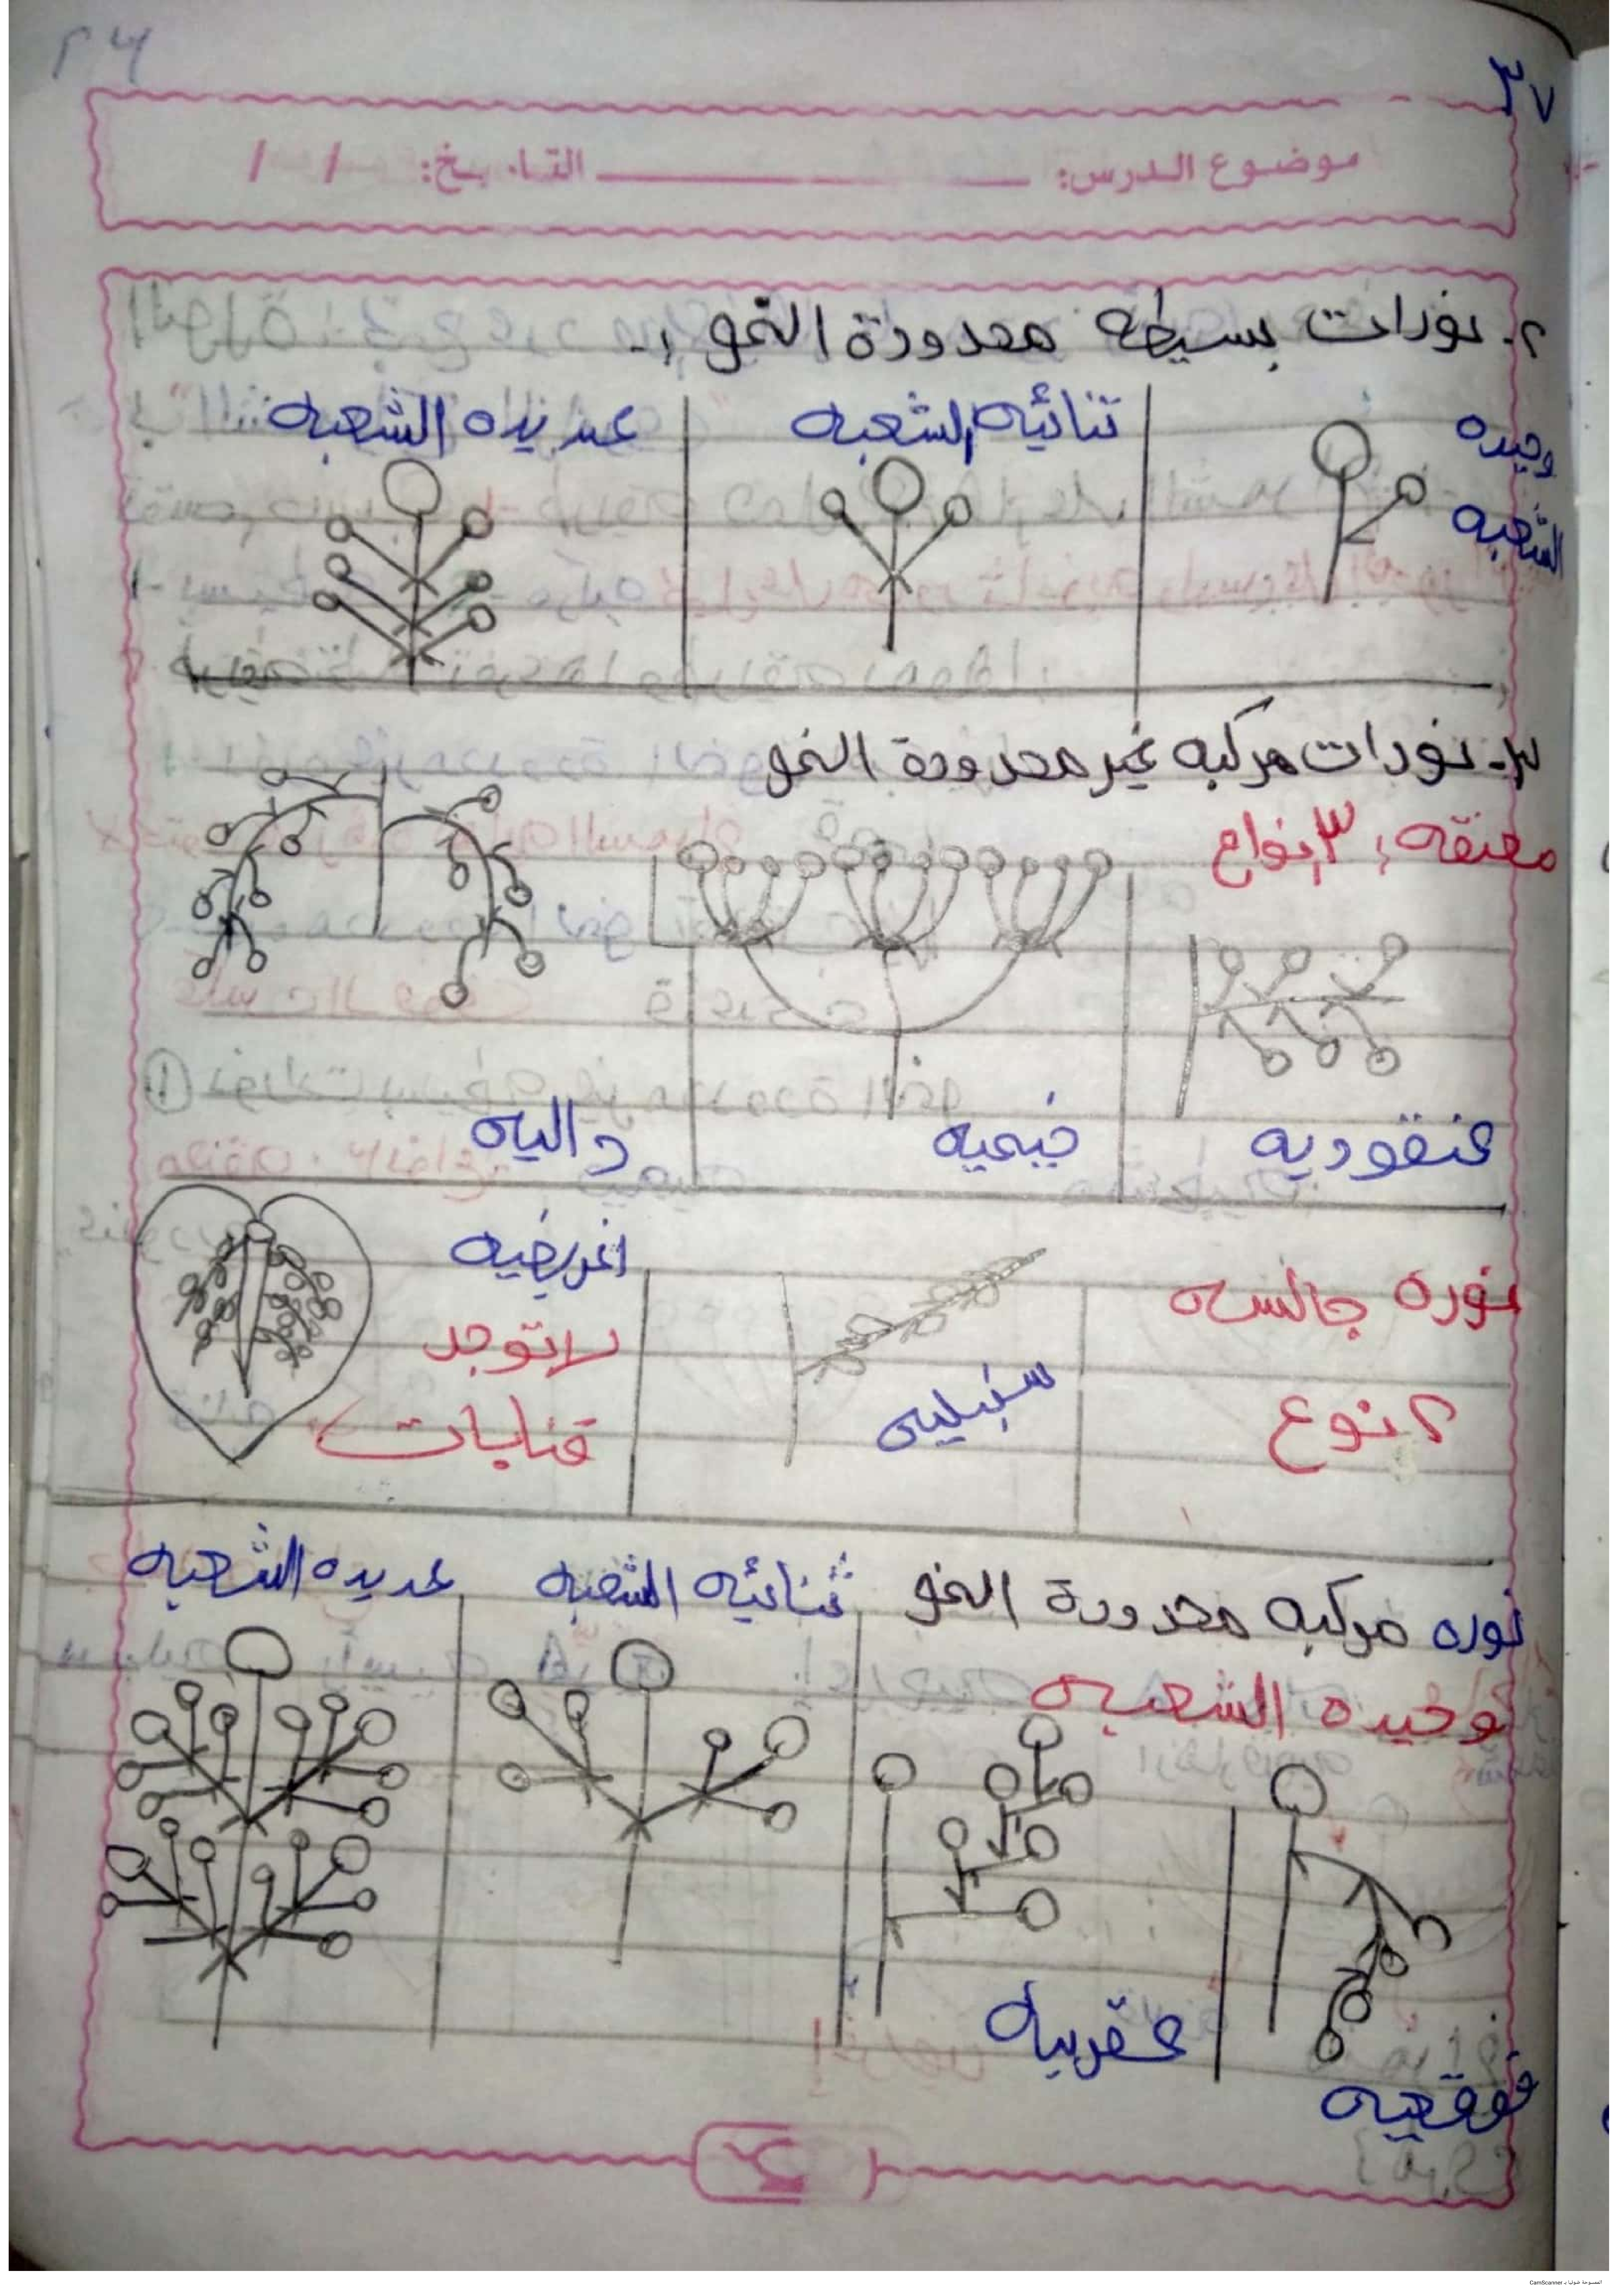 ٣٧
موضوع الدرس: التاريخ: / /
٢- نورات بسيطه محدودة النمو :-
وحيده الشعبه
ثنائيه الشعبه
عديده الشعبه
٣- نورات مركبه غير محدودة النمو
معنقه : ٣ انواع
عنقوديه
خيميه
داليه
نوره جالسه
٢ نوع
سنبليه
اغريضيه
لا توجد
قنابات
نوره مركبه محدودة النمو
وحيده الشعبه
ثنائيه الشعبه
عديده الشعبه
عقربيه
قوقعيه
الممسوحة ضوئيا بـ CamScanner